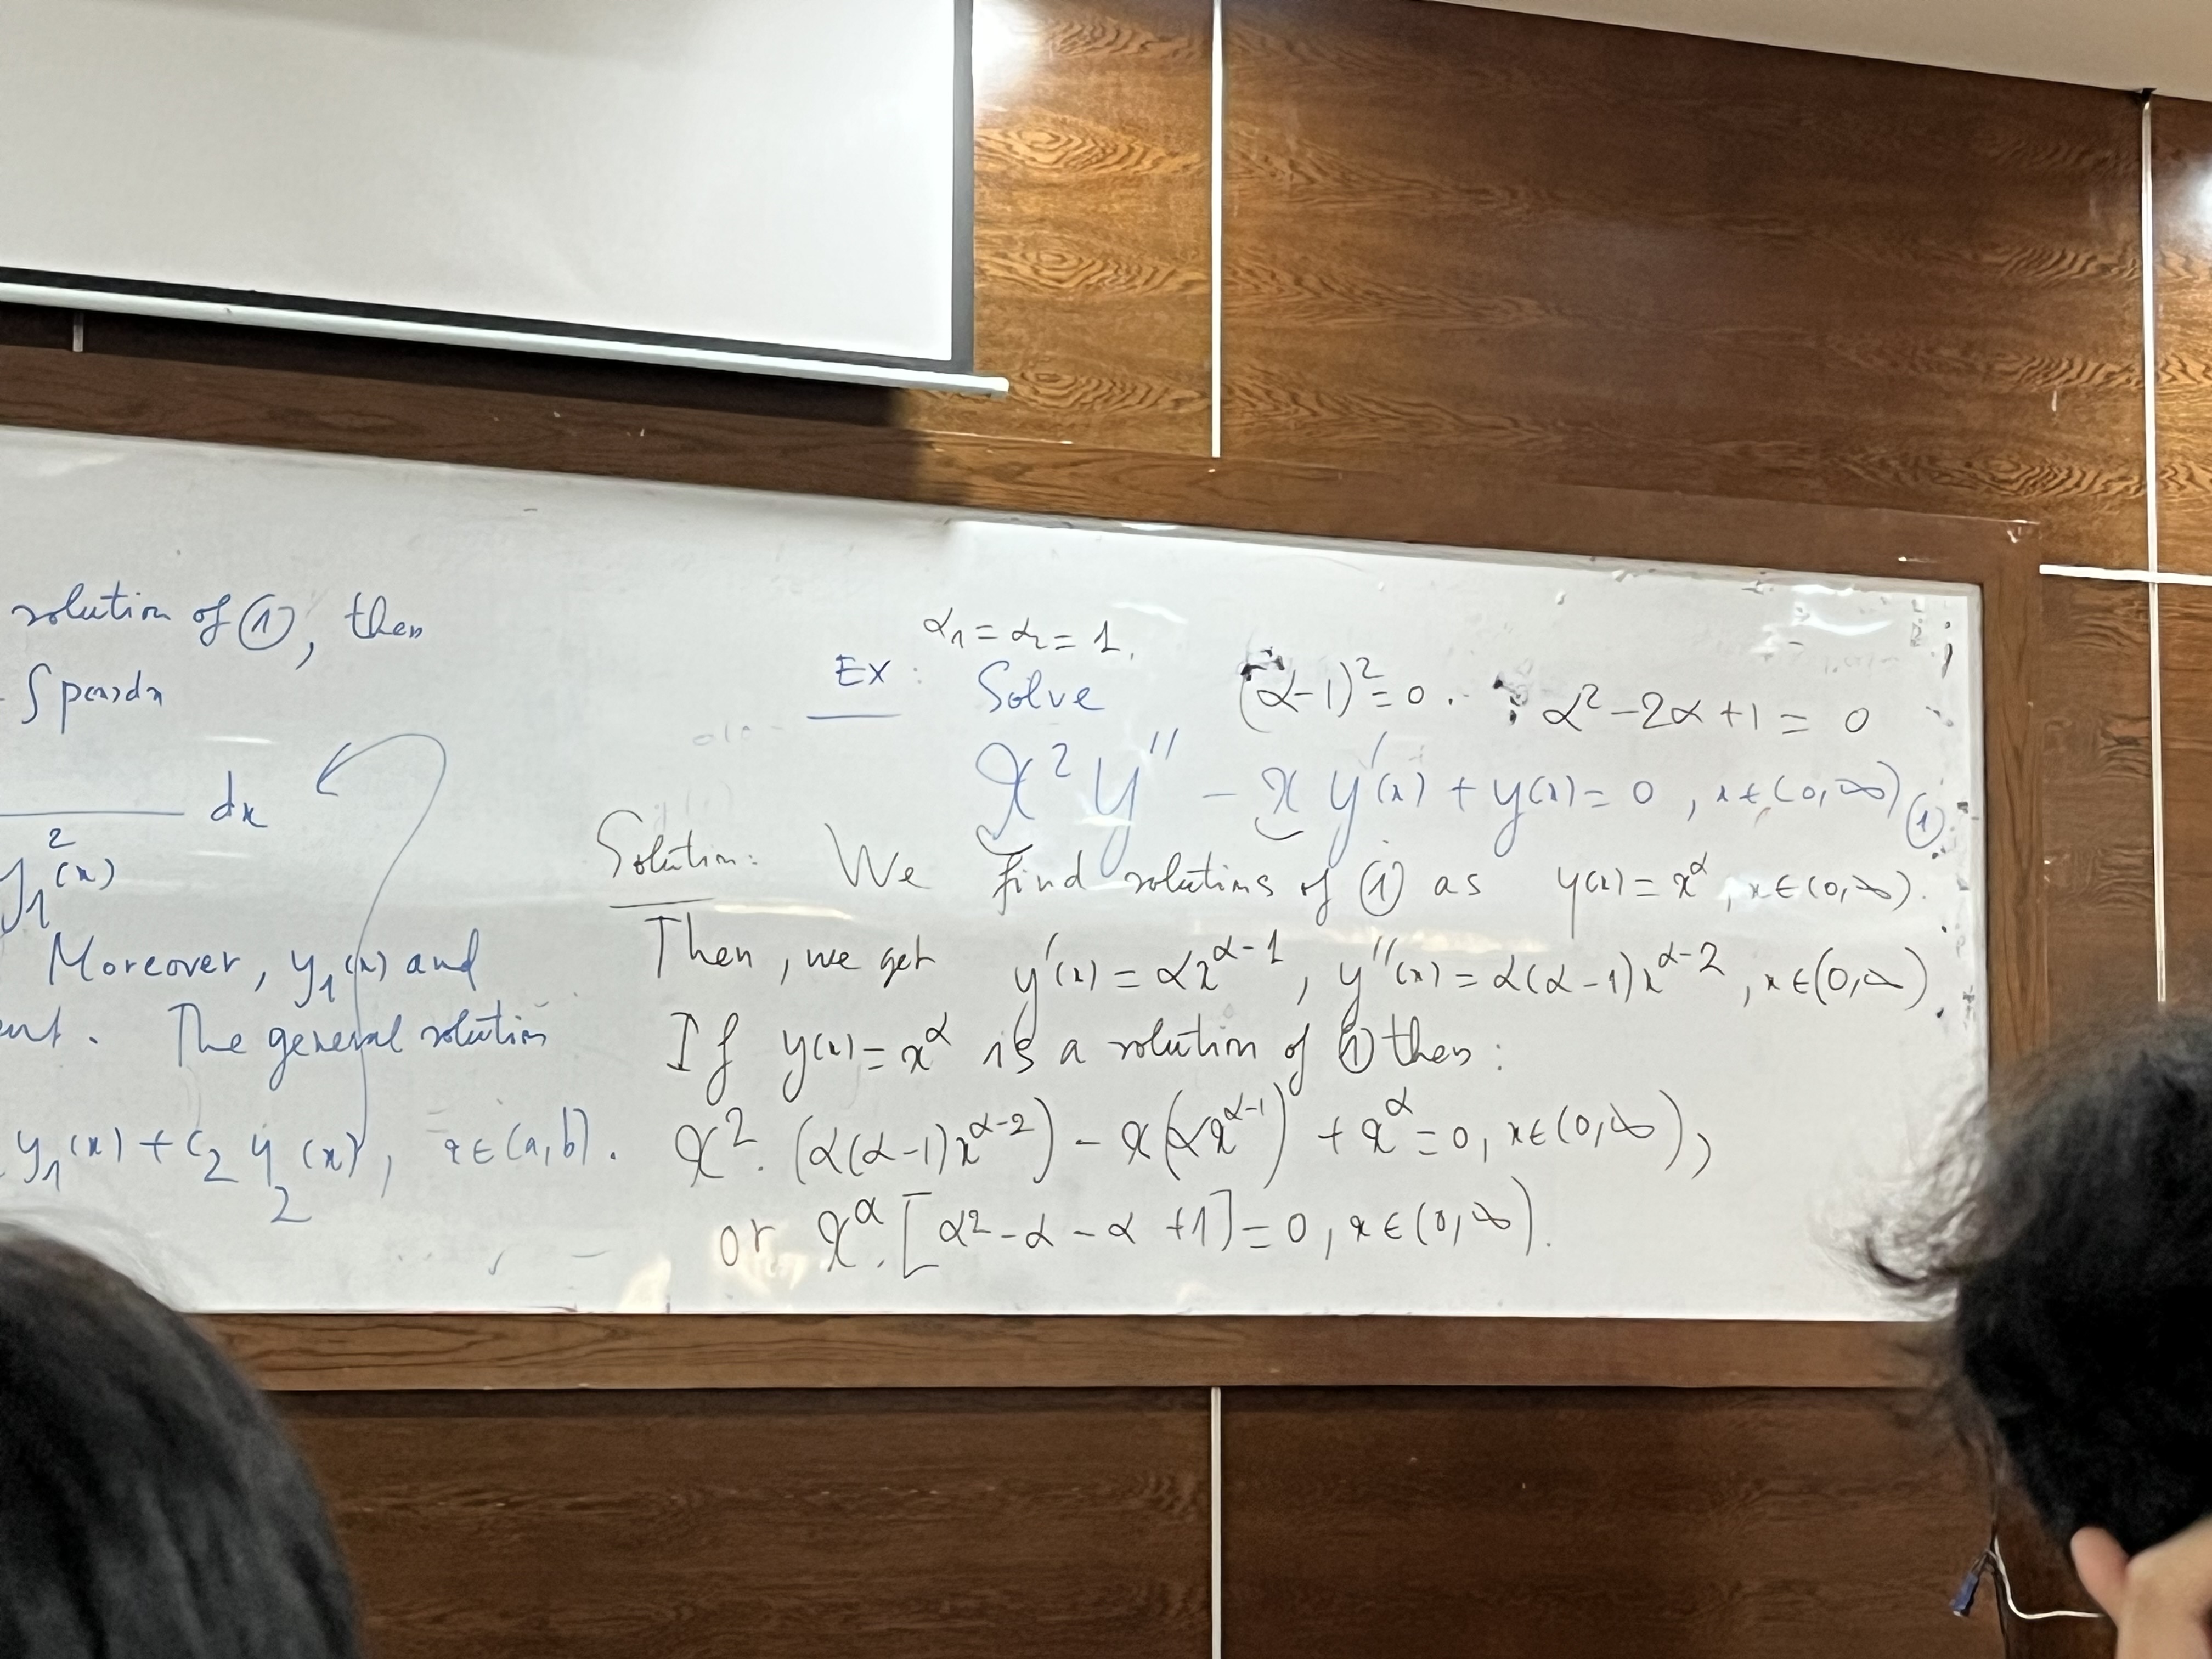 solution of ①, then
- ∫p(x)dx
dx
y₁²(x)
Moreover, y₁(x) and
ent. The general solution
y₁(x) + c₂ y₂(x), x∈(a,b).
α₁ = α₂ = 1.
EX: Solve (α-1)² = 0. α² - 2α + 1 = 0
x² y'' - x y'(x) + y(x) = 0, x∈(0,∞) ①
Solution: We find solutions of ① as y(x) = x^α, x∈(0,∞).
Then, we get y'(x) = αx^(α-1), y''(x) = α(α-1)x^(α-2), x∈(0,∞)
If y(x) = x^α is a solution of ① then:
x².(α(α-1)x^(α-2)) - x(αx^(α-1)) + x^α = 0, x∈(0,∞),
or x^α.[α² - α - α + 1] = 0, x∈(0,∞).